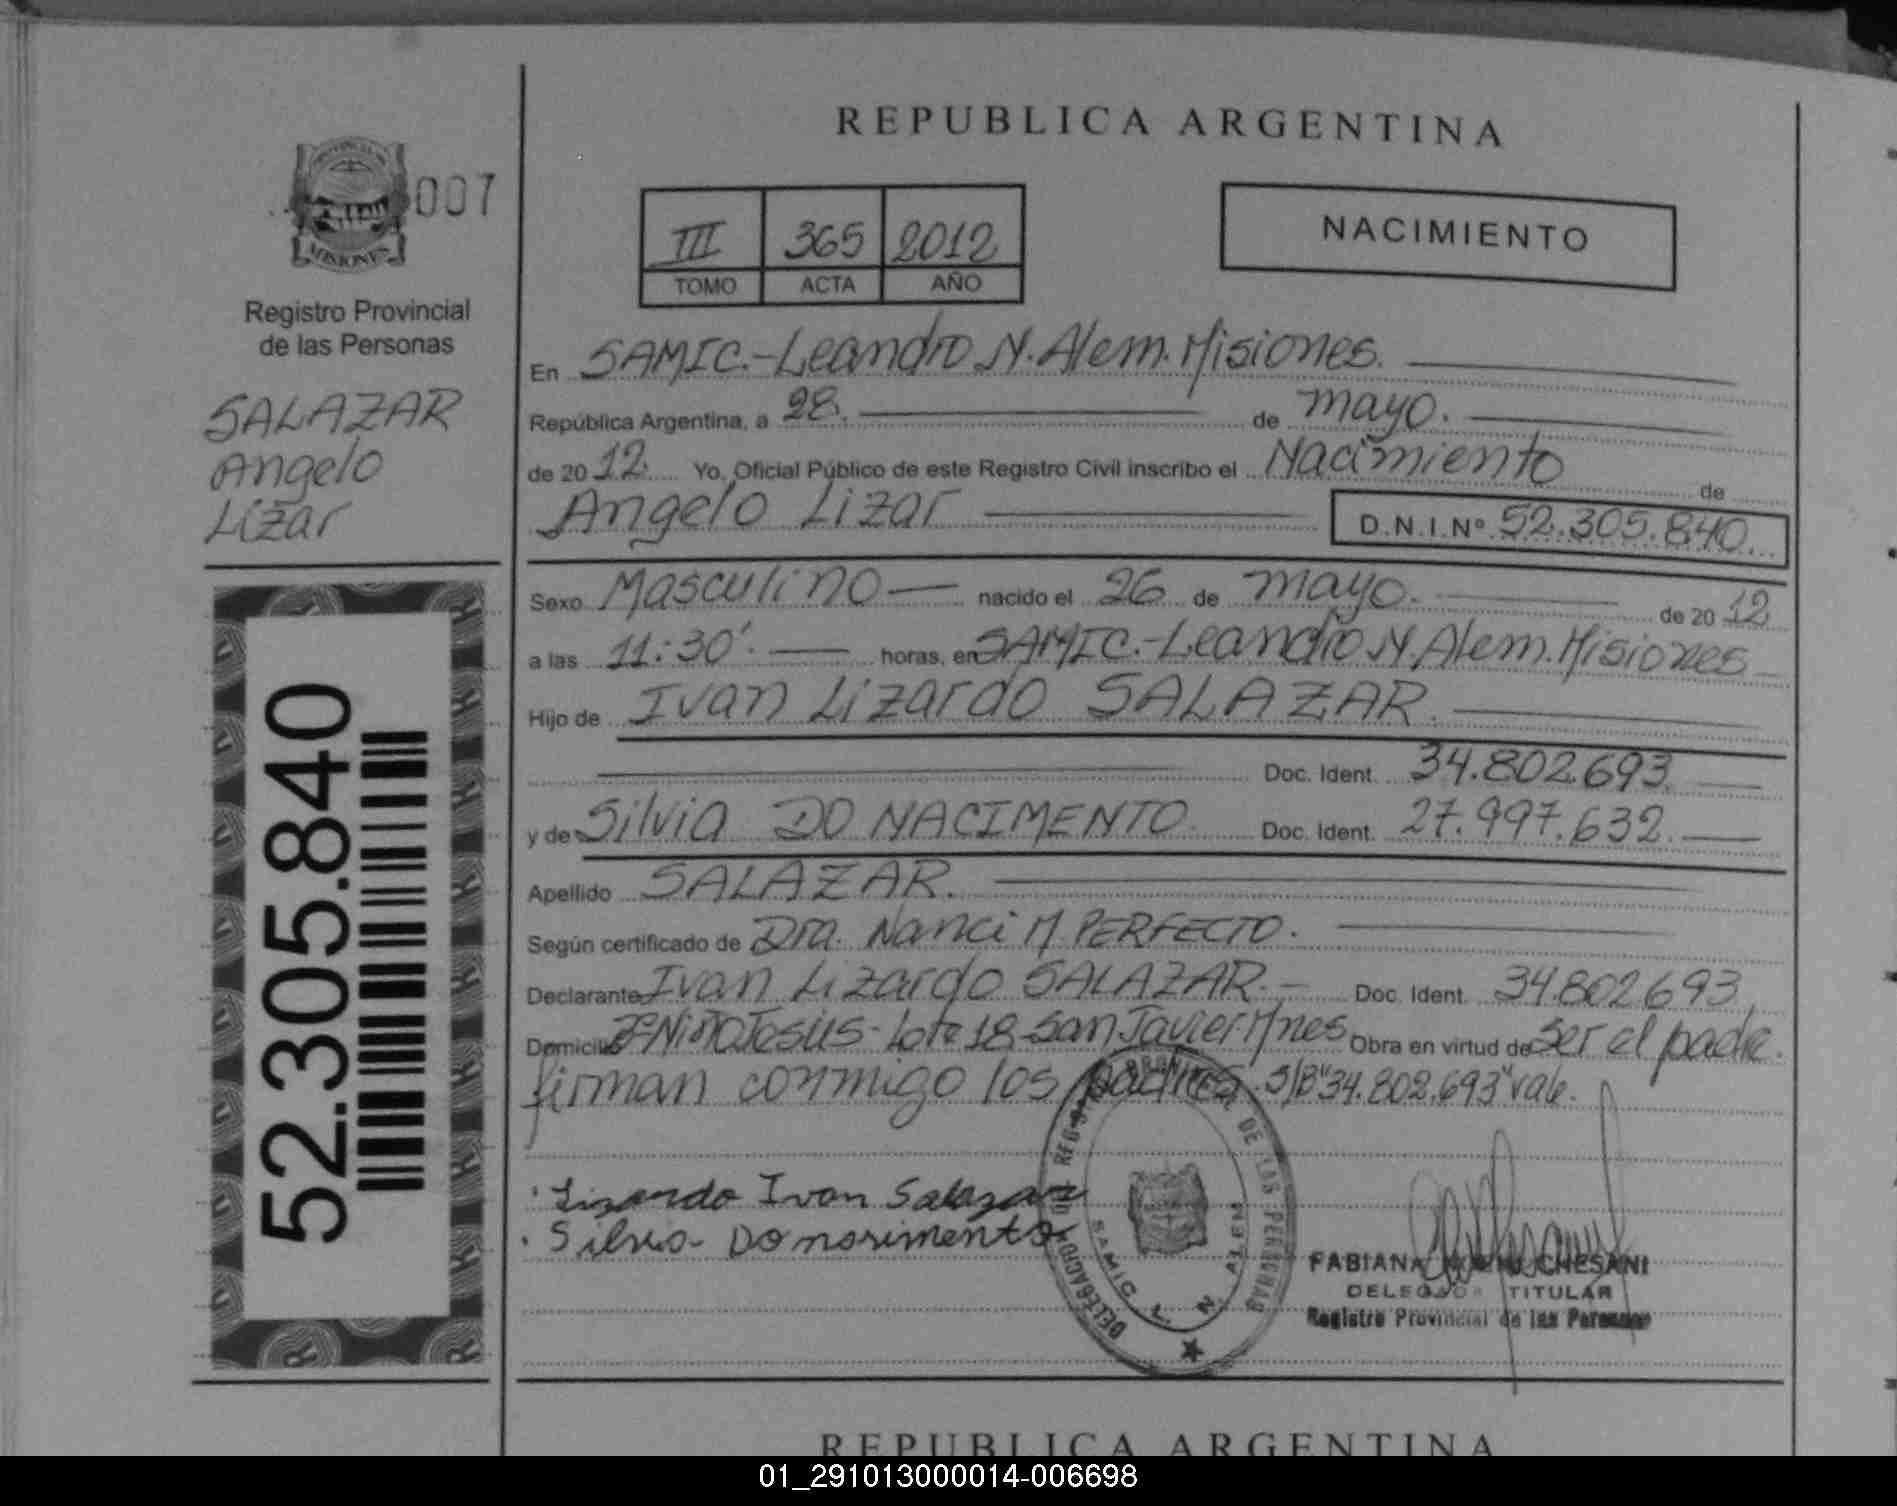 REPUBLICA ARGENTINA
007
PROVINCIA DE
MISIONES
III 365 2012
TOMO ACTA AÑO
NACIMIENTO
Registro Provincial
de las Personas
SALAZAR
Angelo
Lizar
52.305.840
En SAMIC.-Leandro N. Alem. Misiones.
República Argentina, a 28. de mayo.
de 20 12. Yo, Oficial Público de este Registro Civil inscribo el Nacimiento de
Angelo Lizar D.N.I.Nº 52.305.840
Sexo Masculino nacido el 26 de mayo. de 20 12
a las 11:30'. horas, en SAMIC.-Leandro N. Alem. Misiones
Hijo de Ivan Lizardo SALAZAR.
Doc. Ident. 34.802.693.
y de Silvia DO NACIMENTO. Doc. Ident. 27.997.632.
Apellido SALAZAR.
Según certificado de Dra. Nanci M. PERFECTO.
Declarante Ivan Lizardo SALAZAR.- Doc. Ident. 34.802.693
Domicilio Bº Niño Jesús-Lote 18-San Javier-Mnes Obra en virtud de ser el padre.
firman conmigo los padres. S/B "34.802.693" vale.
Lizardo Ivan Salazar
Silvia Do nasimento
DELEGACION REGISTRO PROVINCIAL DE LAS PERSONAS
SAMIC L. N. ALEM
FABIANA CHESANI
DELEGADO TITULAR
Registro Provincial de las Personas
REPUBLICA ARGENTINA
01_291013000014-006698